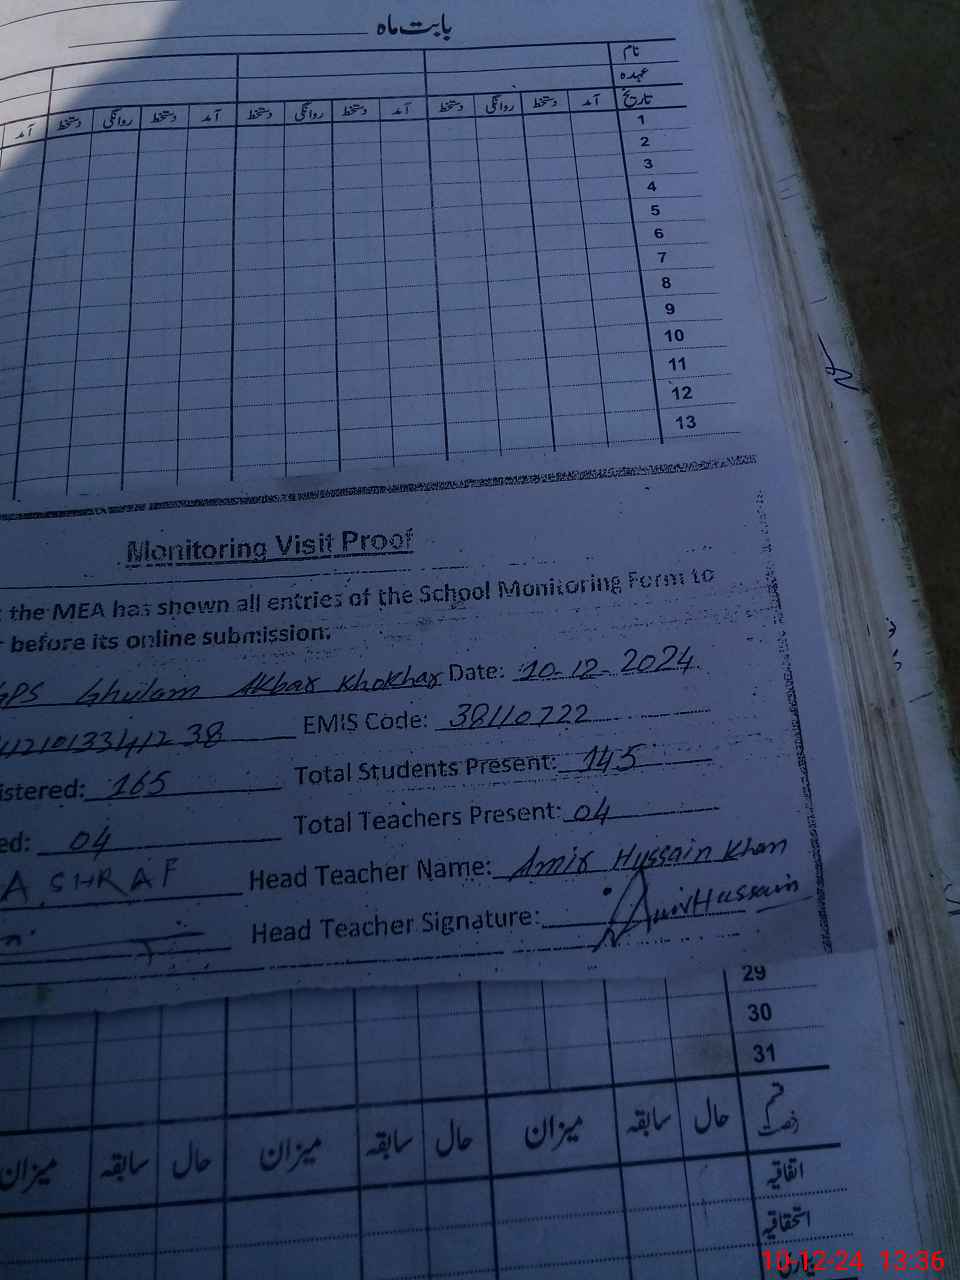 بابت ماہ
نام
عہدہ
تاریخ آمد دستخط روانگی دستخط آمد دستخط روانگی دستخط آمد دستخط روانگی دستخط آمد
1
2
3
4
5
6
7
8
9
10
11
12
13
Monitoring Visit Proof
the MEA has shown all entries of the School Monitoring Form to
before its online submission.
GPS Ghulam Akbar Khokhar Date: 10-12-2024
EMIS Code: 38110722
istered: 165 Total Students Present: 145
ed: 04 Total Teachers Present: 04
ASHRAF Head Teacher Name: Amir Hussain Khan
Head Teacher Signature: Amir Hussain
29
30
31
قسم رخصت حال سابقہ میزان حال سابقہ میزان حال سابقہ میزان
اتفاقیہ
استحقاقیہ
10-12-24 13:36